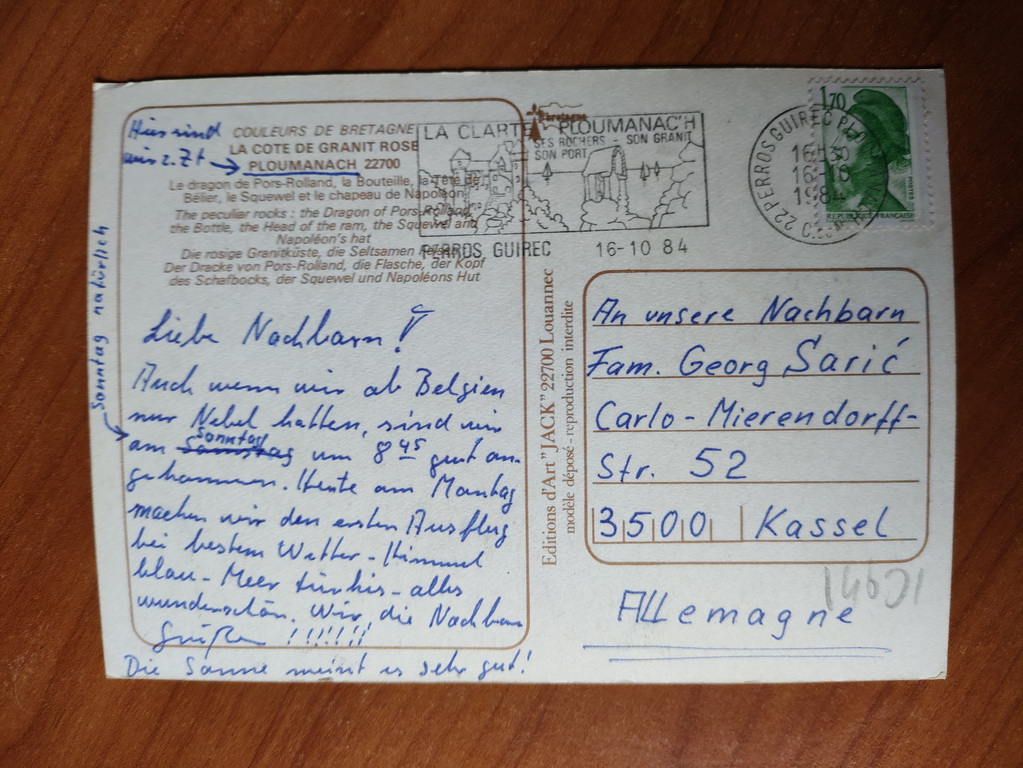 Hier sind
wir z. Zt
COULEURS DE BRETAGNE
LA COTE DE GRANIT ROSE
PLOUMANACH 22700
Le dragon de Pors-Rolland, la Bouteille, la Tête de
Bélier, le Squewel et le chapeau de Napoléon
The peculiar rocks : the Dragon of Pors-Rolland,
the Bottle, the Head of the ram, the Squewel and
Napoléon's hat
Die rosige Granitküste, die Seltsamen
Der Dracke von Pors-Rolland, die Flasche, der Kopf
des Schafbocks, der Squewel und Napoléons Hut
Bretagne
LA CLARTE PLOUMANAC'H
SES ROCHERS - SON GRANIT
SON PORT
PERROS GUIREC 16-10 84
22 PERROS GUIREC
16 H 30
16-10
1984
1,70
POSTES
REPUBLIQUE FRANÇAISE
Sonntag natürlich
Liebe Nachbarn!
Auch wenn wir ab Belgien
nur Nebel hatten, sind wir
am Samstag Sonntag um 8 45 gut an-
gekommen. Heute am Montag
machen wir den ersten Ausflug
bei bestem Wetter - Himmel
blau - Meer türkis - alles
wunderschön. Wir, die Nachbarn
Grüßen !!!!!!!
Die Sonne meint es sehr gut!
Editions d'Art "JACK" 22700 Louannec
modèle déposé - reproduction interdite
An unsere Nachbarn
Fam. Georg Sarić
Carlo-Mierendorff-
Str. 52
3500 Kassel
Allemagne